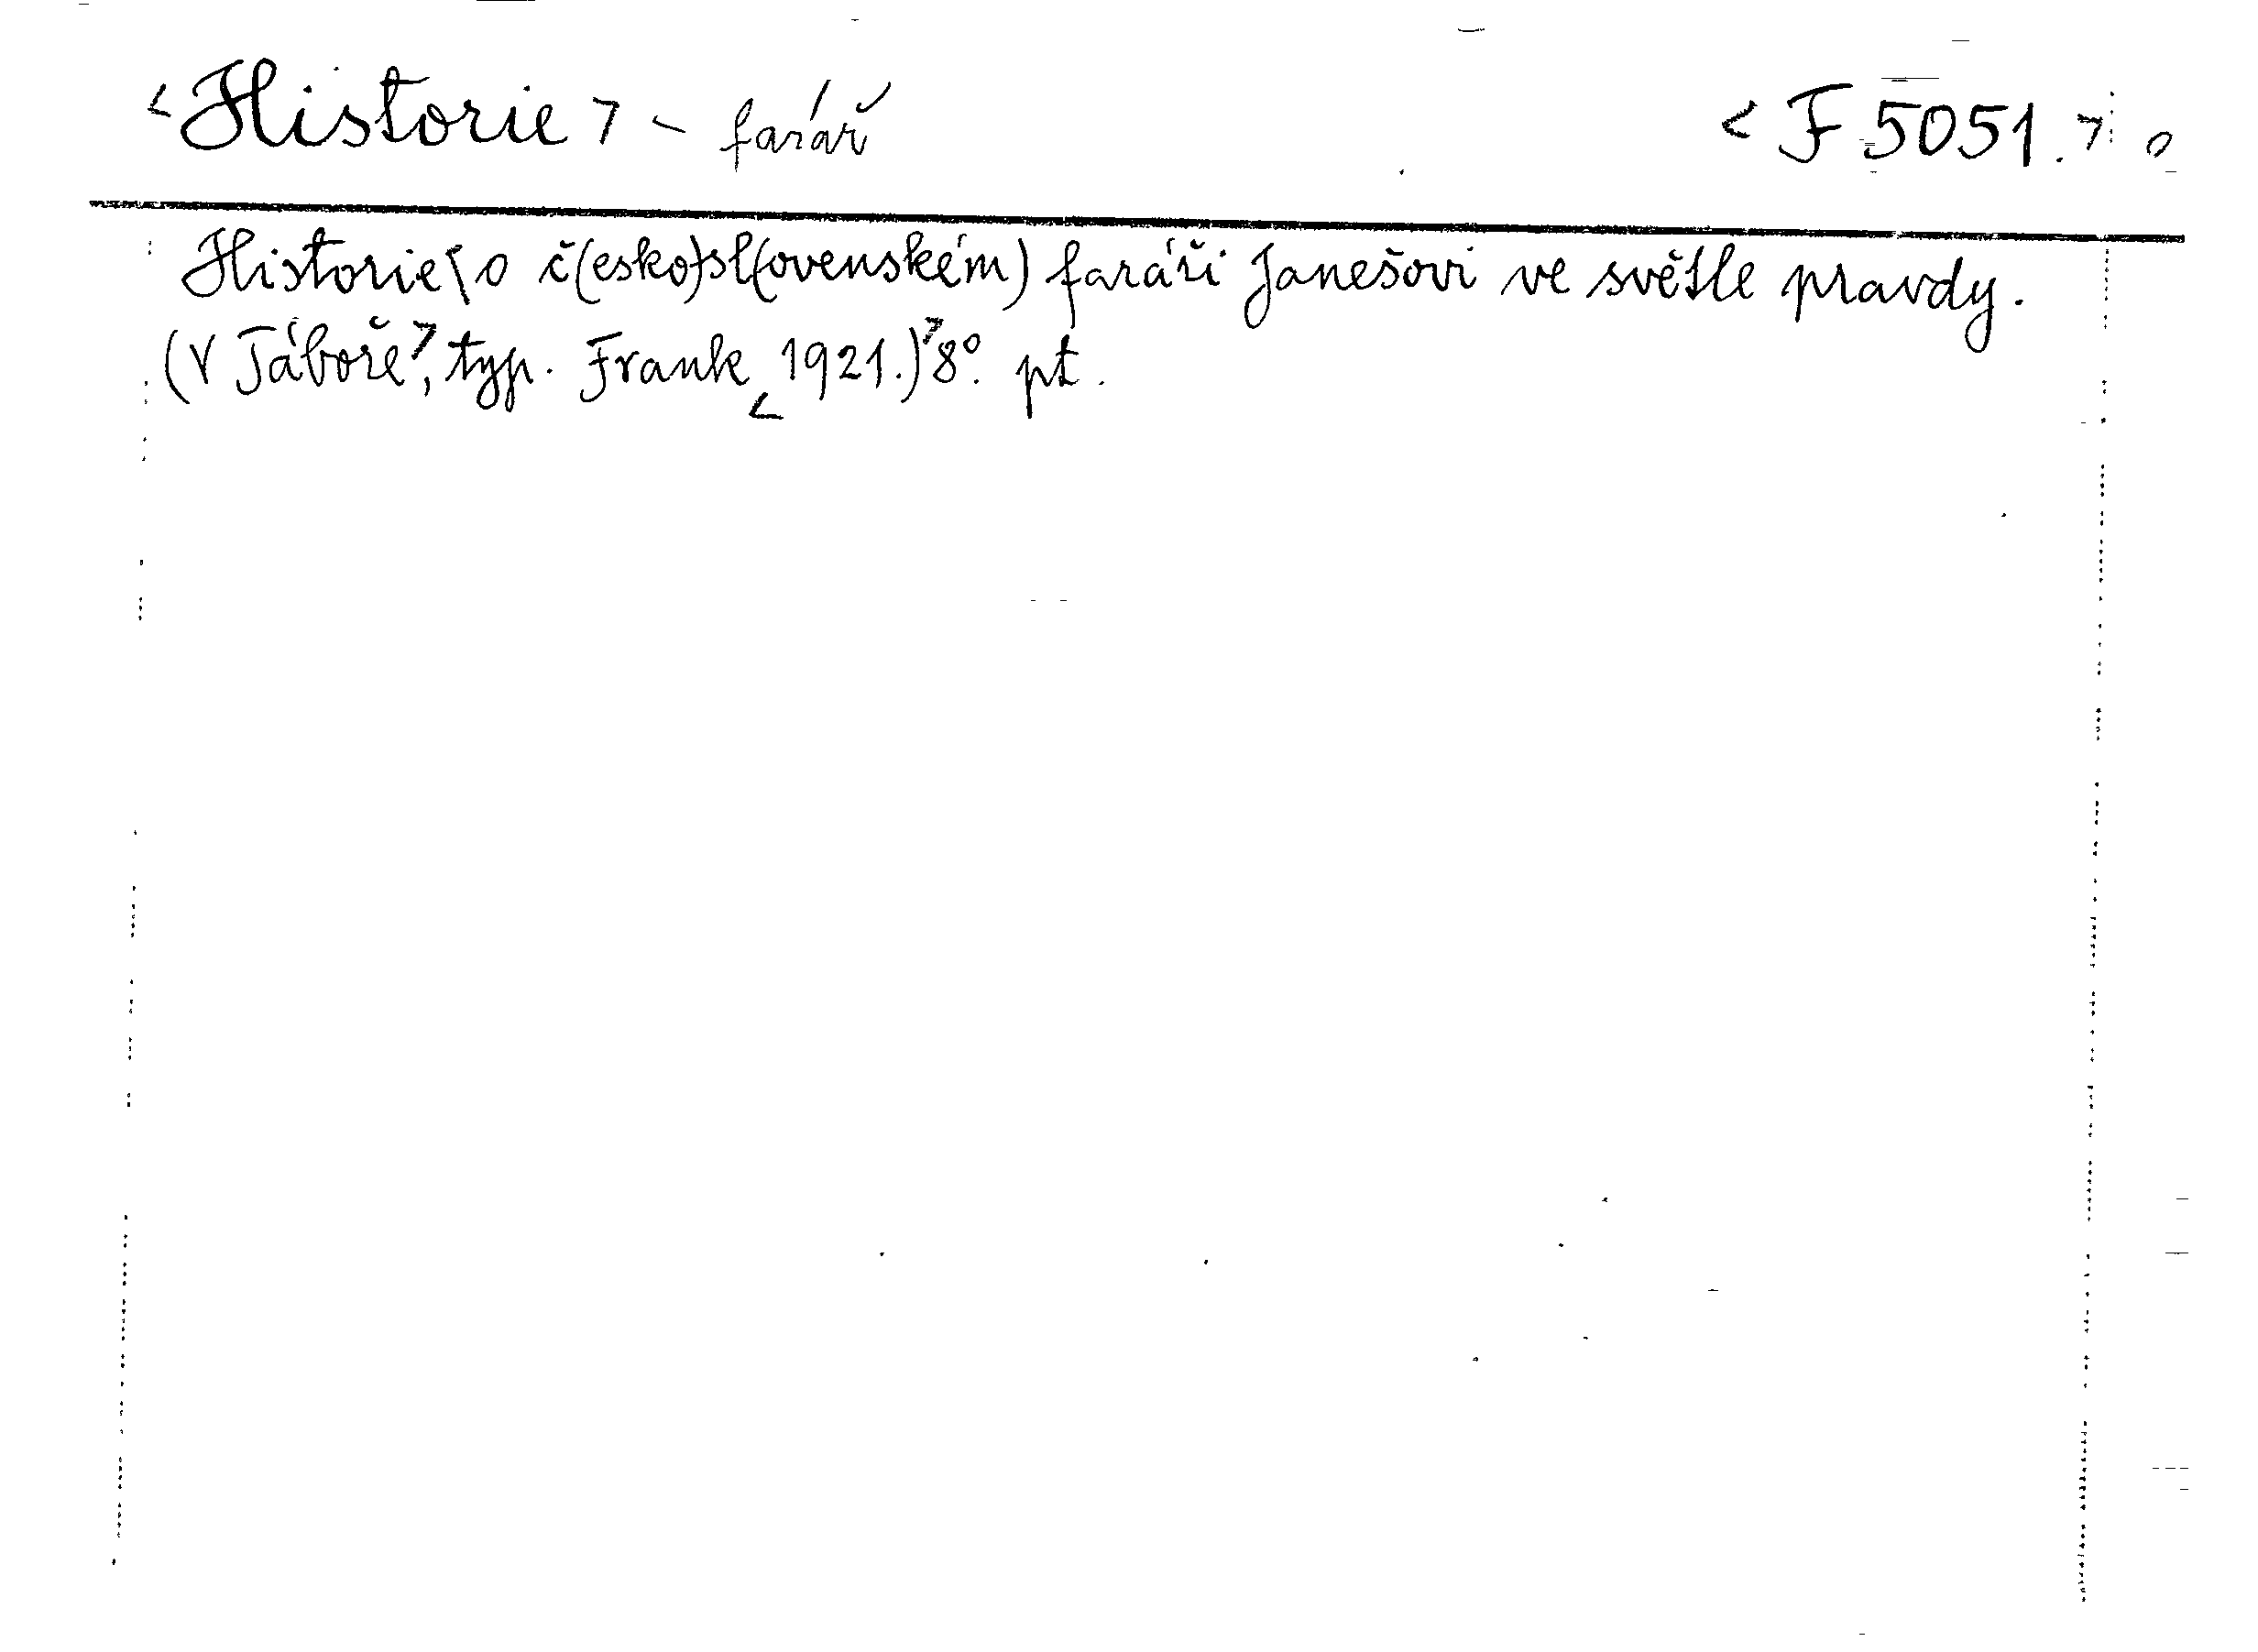 <Historie> - farář <F 5051.> o
Historie\ o č(esko)sl(ovenském) faráři Janešovi ve světle pravdy.
(V Táboře>, typ. Frank < 1921.)> 8°. pt.